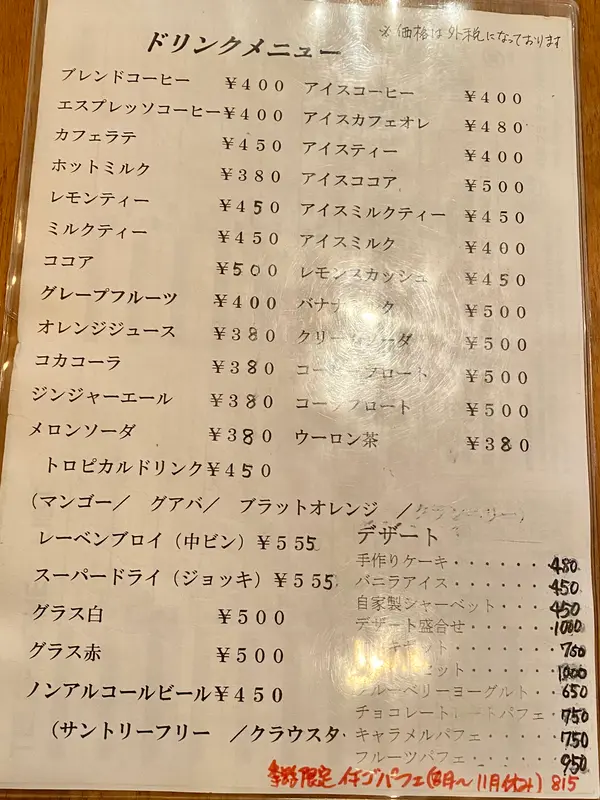 ドリンクメニュー
※価格は外税になっております
ブレンドコーヒー ¥400
エスプレッソコーヒー ¥400
カフェラテ ¥450
ホットミルク ¥380
レモンティー ¥450
ミルクティー ¥450
ココア ¥500
グレープフルーツ ¥400
オレンジジュース ¥380
コカコーラ ¥380
ジンジャーエール ¥380
メロンソーダ ¥380
トロピカルドリンク ¥450
アイスコーヒー ¥400
アイスカフェオレ ¥480
アイスティー ¥400
アイスココア ¥500
アイスミルクティー ¥450
アイスミルク ¥400
レモンスカッシュ ¥450
¥500
クリームソーダ ¥500
コーヒーフロート ¥500
コーラフロート ¥500
ウーロン茶 ¥380
(マンゴー/ グアバ/ ブラットオレンジ /クランベリー)
レーベンブロイ(中ビン) ¥555
スーパードライ(ジョッキ) ¥555
グラス白 ¥500
グラス赤 ¥500
ノンアルコールビール ¥450
(サントリーフリー /クラウスタ・
デザート
手作りケーキ・・・・・・・480
バニラアイス・・・・・・・450
自家製シャーベット・・・・450
デザート盛合せ・・・・・・1000
・・・・760
・・・・1000
ブルーベリーヨーグルト・・650
パフェ・750
キャラメルパフェ・・・・・750
フルーツパフェ・・・・・・950
限定 イチゴパフェ 815